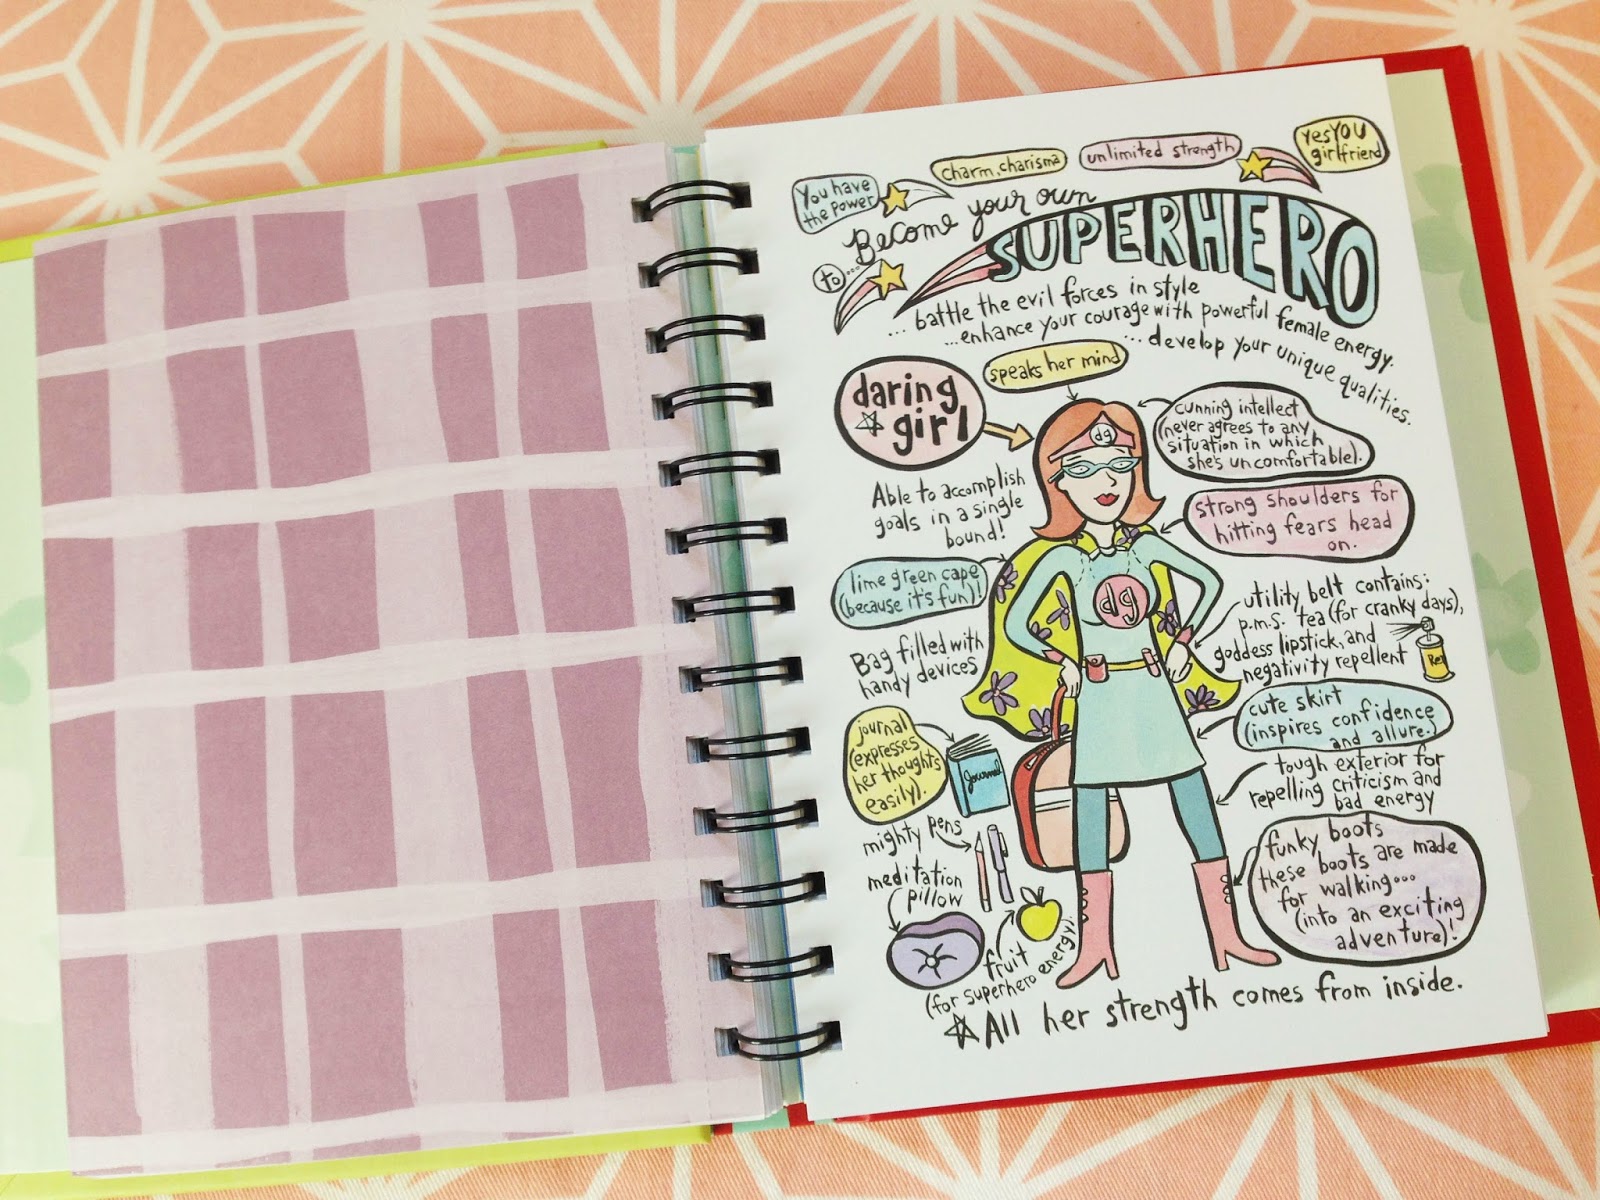 You have
the power
charm, charisma
unlimited strength
yes YOU
girlfriend
Become your own
SUPERHERO
to...
... battle the evil forces in style
... enhance your courage with powerful female energy.
... develop your unique qualities.
daring
girl
speaks her mind
cunning intellect
(never agrees to any
situation in which
she's uncomfortable).
dg
Able to accomplish
goals in a single
bound!
strong shoulders for
hitting fears head
on.
lime green cape
(because it's fun)!
dg
utility belt contains:
p.m.s. tea (for cranky days),
goddess lipstick, and
negativity repellent
Bag filled with
handy devices
cute skirt
(inspires confidence
and allure.)
journal
(expresses
her thoughts
easily).
Journal
tough exterior for
repelling criticism and
bad energy
mighty pens
meditation
pillow
funky boots
these boots are made
for walking...
(into an exciting
adventure)!
fruit
(for superhero energy).
All her strength comes from inside.